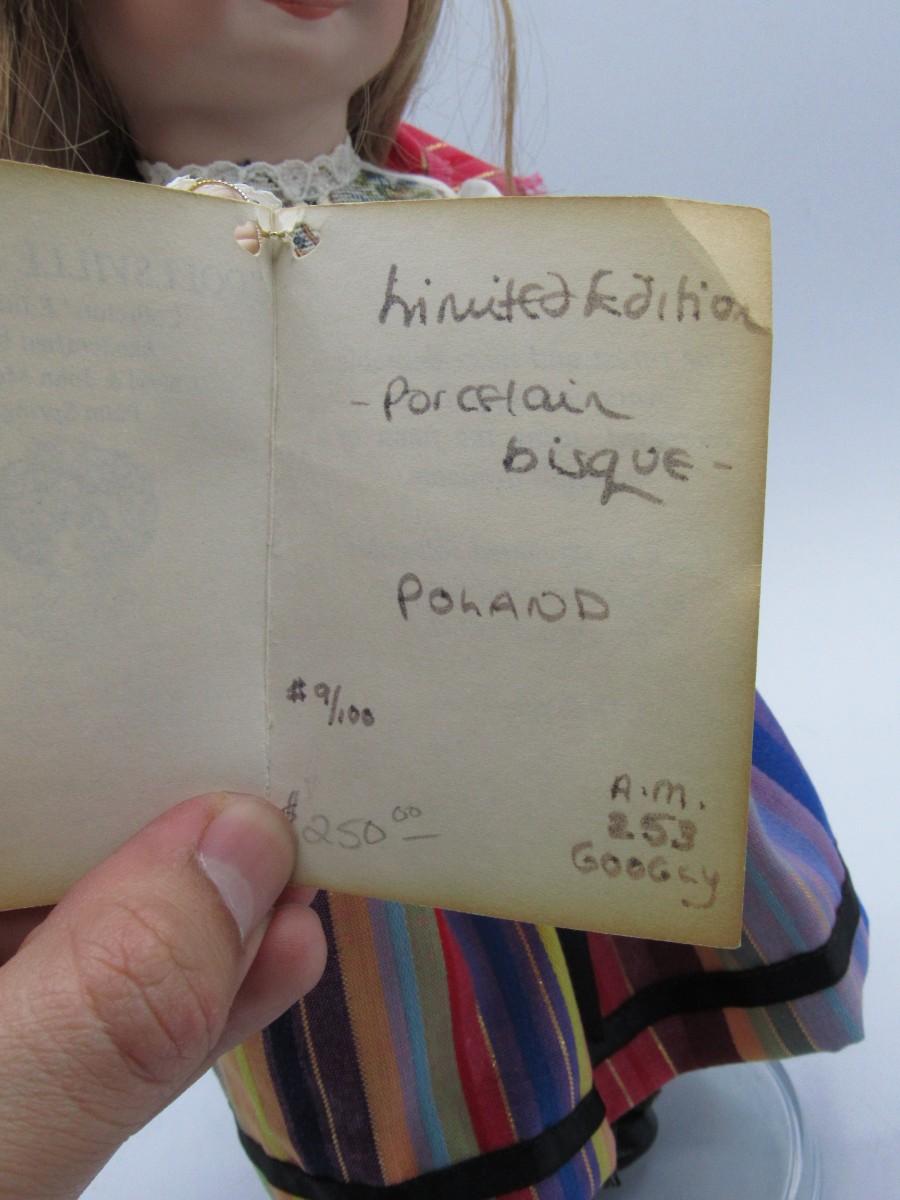 Limited Edition
- Porcelain
bisque -
POLAND
#9/100
$250.00
A.M.
253
GOOGLY